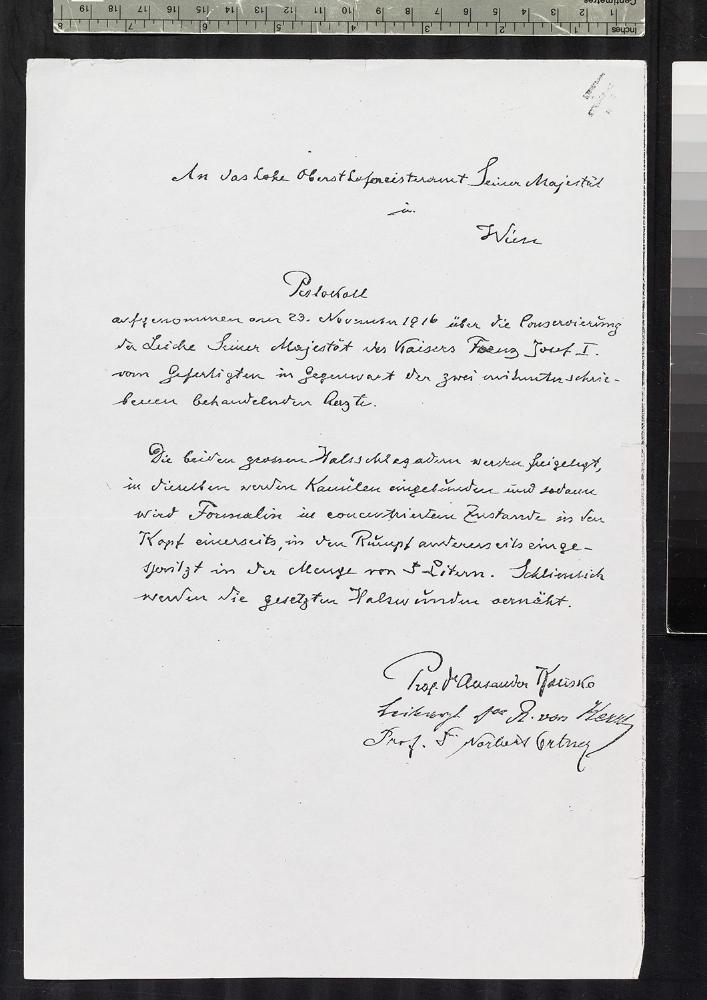 An das hohe Obersthofmeisteramt Seiner Majestät
in
Wien
Protokoll
aufgenommen am 23. November 1916 über die Conservierung
der Leiche Seiner Majestät des Kaisers Franz Josef I.
vom Gefertigten in Gegenwart der zwei mitunterschrie-
benen behandelnden Aerzte.
Die beiden grossen Halsschlagadern werden freigelegt,
in dieselben werden Kanülen eingebunden und sodann
wird Formalin in concentriertem Zustande in den
Kopf einerseits, in den Rumpf andererseits einge-
spritzt in der Menge von 5 Litern. Schliesslich
werden die gesetzten Halswunden vernäht.
Prof. Dr Alexander Kolisko
R. von Kerzl
Prof. Dr Norbert Ortner
Inches 1 2 3 4 5 6 7 8
Centimetres 1 2 3 4 5 6 7 8 9 10 11 12 13 14 15 16 17 18 19